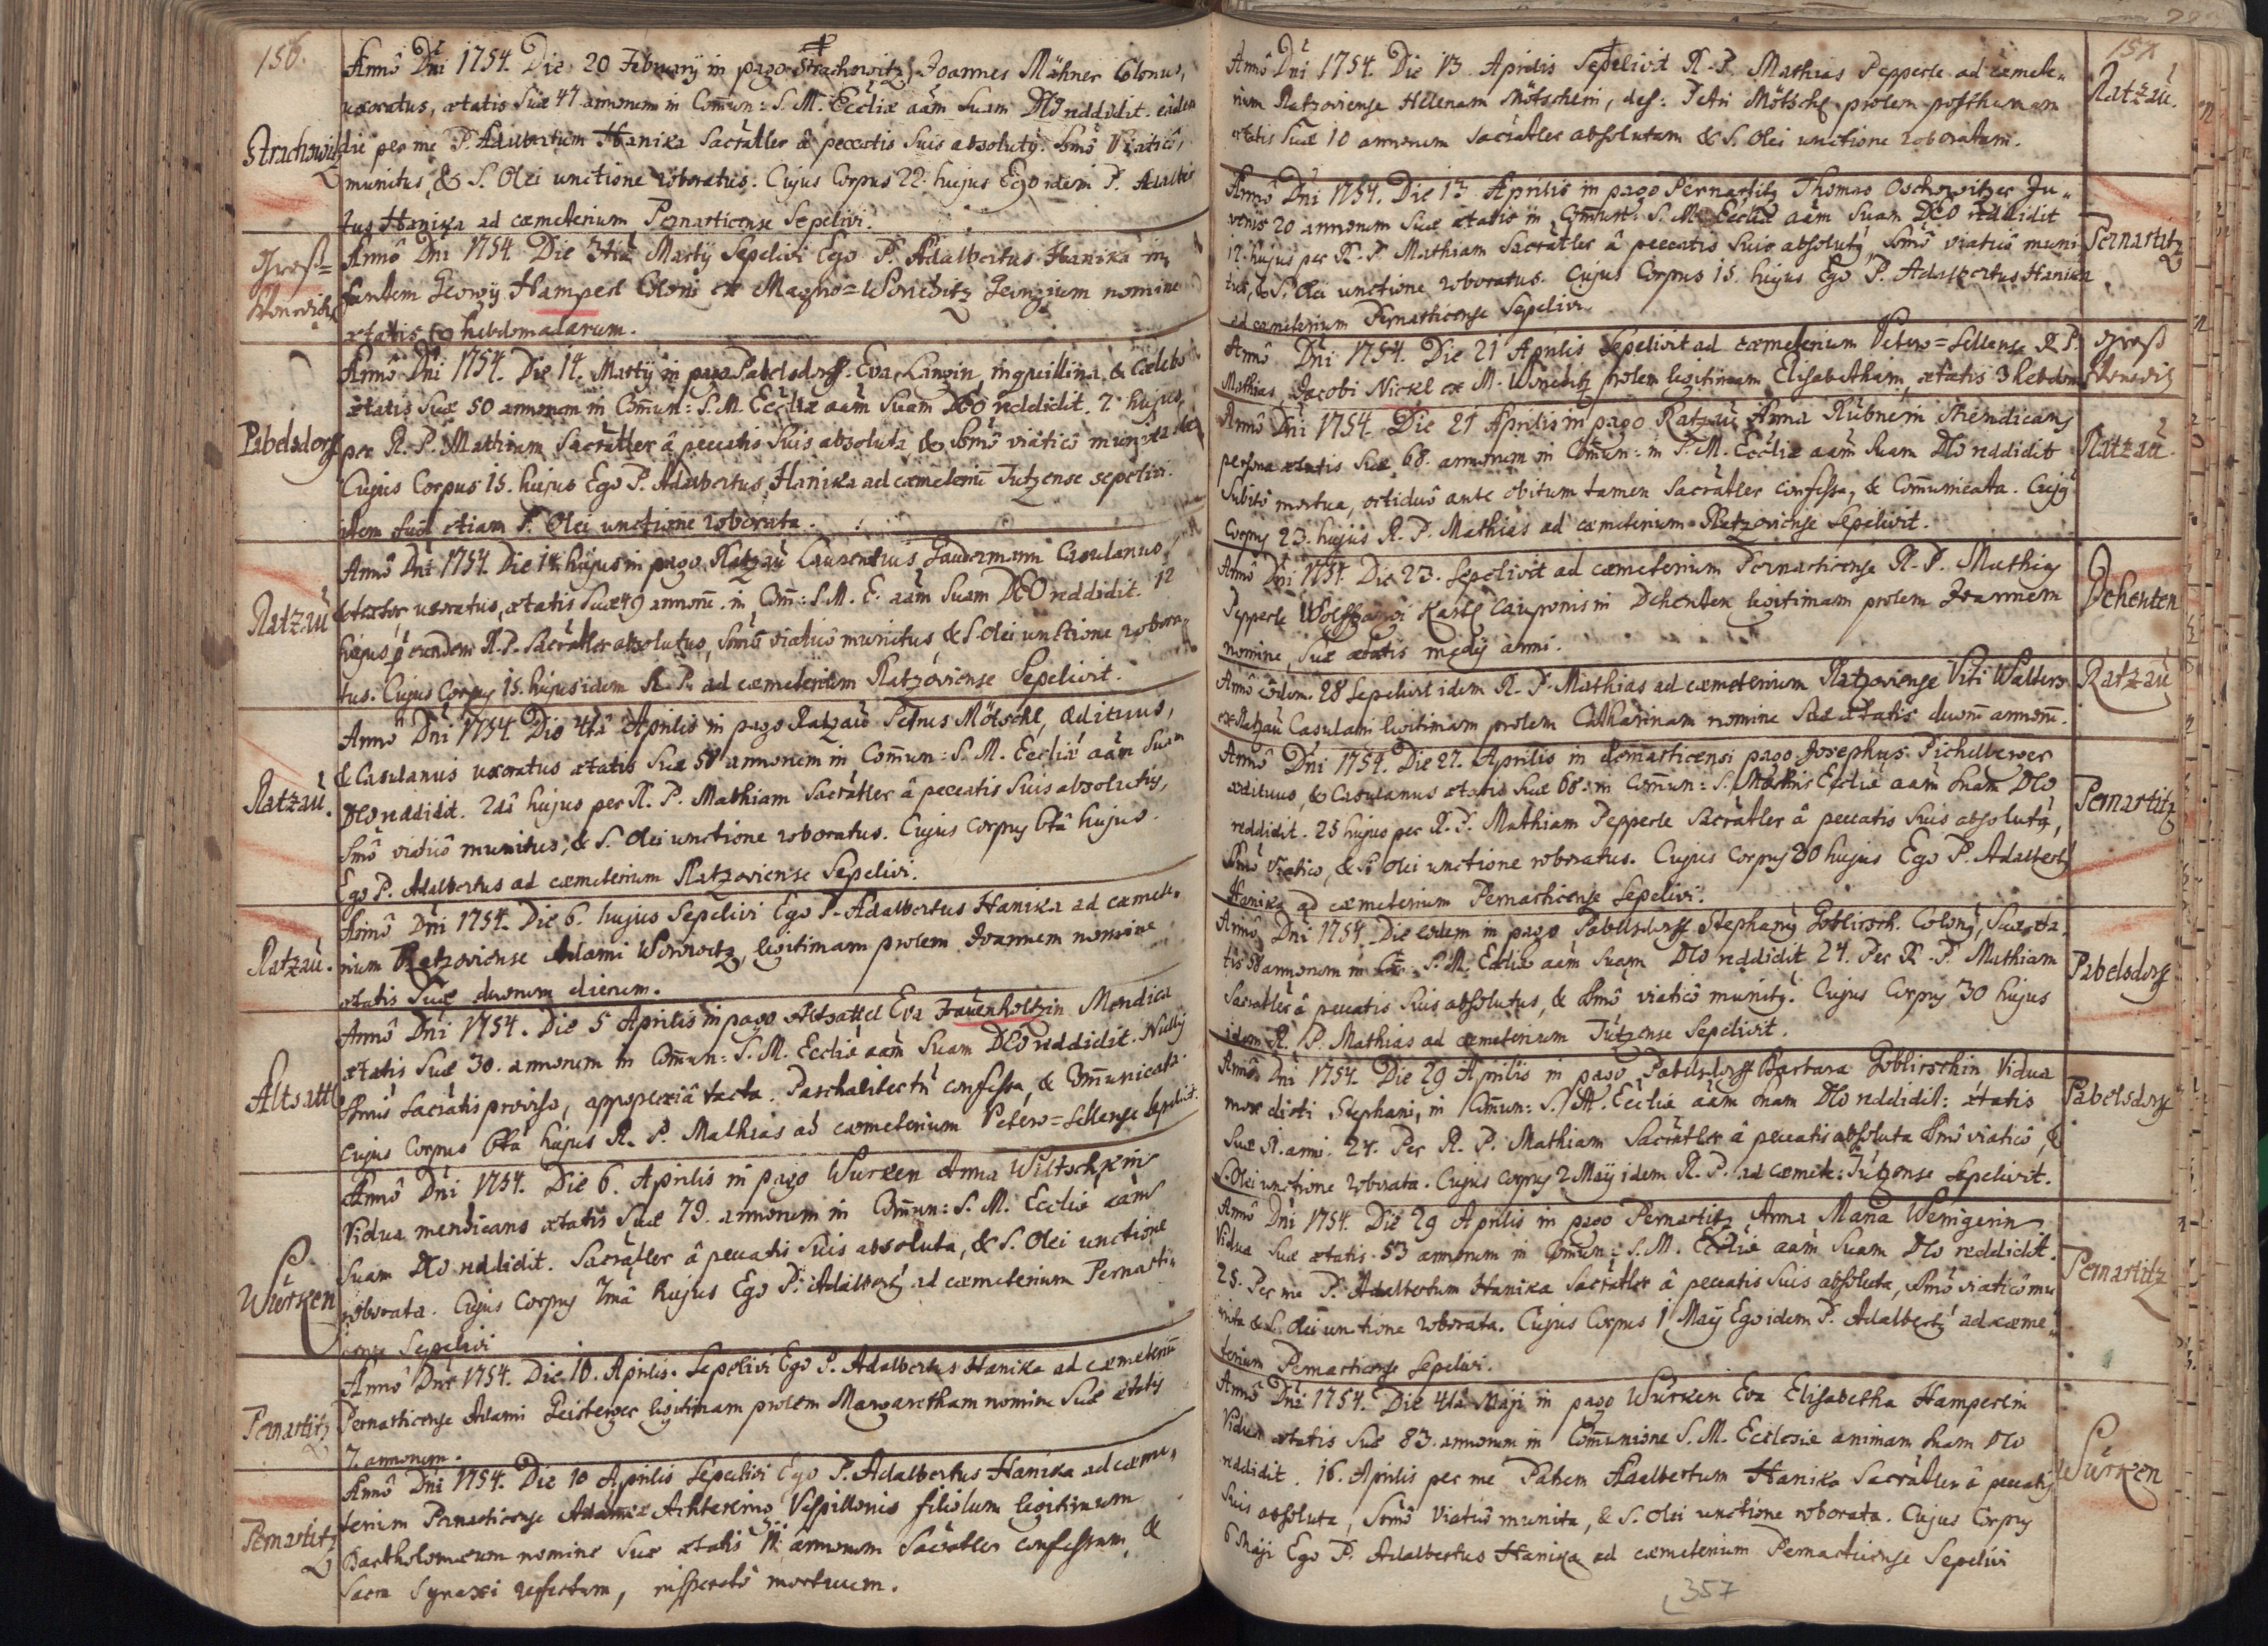 156.
Anno Dni 1754. Die 20 February in pago Strachowitz Joannes Mähner Colonus,
uxoratus, ætatis suæ 47 annorum in Comun: S. M. Eccliæ aam suam DEO reddidit. eâdem
Strachowitz
die per me P. Adalbertum Hanika Sacratler â peccatis suis absolutg. Smô Viaticô,
munitus, & S. Olei unctione roboratus. Cujus Corpus 22. hujus Ego idem P. Adalber
tus Hanika ad cæmeterium Pernarticense Sepelivi.
Gross=
Woneditz
Anno Dni 1754. Die 3tia Marty Sepelivi Ego P. Adalbertus Hanika in,
fantem Georgy Hamperl Coloni ex Magno=Woneditz Georgium nomine
ætatis hebdomadarum.
Anno Dni 1754. Die 14. Marty in pago Pabelsdorff. Eva Langin, inquillina, & Cælebs
ætatis suæ 50 annorum in Comun: S. M. Eccliæ aam suam DEO reddidit. 7 hujus
Pabelsdorff
per R. P. Mathiam Sacratler â peccatis suis absoluta & Smô viaticô munita
Cujus Corpus 15. hujus Ego P. Adalbertus Hanika ad cæmeteriu Tutzense sepelivi.
item fuit etiam S. Olei unctione roborata.
Anno Dni 1754. Die 14 hujus in pago Ratzau Laurentius Gaudermann Casulanus
Ratzau
& textor, uxoratus, ætatis suæ 49 annoru. in Com: S. M. E. aam suam DEO reddidit. 12
hujus p eundem R. P. Sacratler absolutus, Smô viaticô munitus, & S. Olei unctione robora=
tus. Cujus Corpus 15. hujus idem R. P. ad cæmeterium Ratzoviense Sepelivit.
Anno Dni 1754. Die 4ta Aprilis in pago Ratzau Petrus Mötschl, ædituus,
& Casulanus uxoratus ætatis suæ 58 annorum in Comun: S. M. Eccliæ aam suam
Ratzau.
DEO reddidit. 2dâ hujus per R. P. Mathiam Sacratler â peccatis suis absolutus,
Smô viaticô munitus, & S. Olei unctione roboratus. Cujus Corpus 6tâ hujus.
Ego P. Adalbertus ad cæmeterium Ratzoviense Sepelivi.
Anno Dni 1754. Die 6. hujus Sepelivi Ego P. Adalbertus Hanika ad cæmete,
Ratzau.
rium Ratzoviense Adami Worwitz, legitimam prolem Joannem nomine
ætatis suæ duorum dierum.
Anno Dni 1754. Die 5 Aprilis in pago Altsattel Eva Frauenholtzin Mendica
ætatis suæ 30. annorum in Comun: S. M. Eccliæ aam suam DEO reddidit. Nullis
Altsattl
Smis Sacratis provisa, appoplexiâ tacta. Paschaliter tn confessa, & Comunicata.
Cujus Corpus 6ta hujus R. P. Mathias ad cæmeterium Veters=Sellense Sepelivit.
Anno Dni 1754. Die 6. Aprilis in pago Wurken Anna Wiltschkin
Vidua mendicans ætatis suæ 79. annorum in Comun: S. M. Eccliæ aam
suam DEO reddidit. Sacratler â peccatis suis absoluta, & S. Olei unctione
Würken
roborata. Cujus Corpus 7mâ hujus Ego P. Adalbertg ad cæmeterium Pernarti=
cense Sepelivi
Anno Dni 1754. Die 10. Aprilis. Sepelivi Ego P. Adalbertus Hanika ad cæmeteriu
Pernartitz
Pernarticense Adami Geisberger legitimam prolem Margaretham nomine suæ ætatis
7. annorum.
Anno Dni 1754. Die 10 Aprilis Sepelivi Ego P. Adalbertus Hanika ad cæme,
terium Pernarticense Achterling Vespillonis filiolum legitimum
Pernartitz
Bartholomæum nomine suæ ætatis annorum Sacratler confessum, &
Sacra Synaxi refectum, insperatô mortuum.
157
Anno Dni 1754. Die 13 Aprilis Sepelivit R. P. Mathias Pepperle ad cæmete,
Ratzau.
rium Ratzoviense Helenam Mötschlin, def: Petri Mötschl prolem posthumam
ætatis suæ 10 annorum Sacratler absolutam & S. Olei unctione roboratam.
Anno Dni 1754. Die 13 Aprilis in pago Pernartitz Thomas Oschowitzer Ju=
venis 20 annorum suæ ætatis in Comun: S. M. Eccliæ aam suam DEO reddidit
Pernartitz
12. hujus per R. P. Mathiam Sacratler â peccatis suis absolutg, Smô viaticô muni=
tus, & S. Olei unctione roboratus. Cujus Corpus 15. hujus Ego P. Adalbertus Hanika
ad cæmeterium Pernarticense Sepelivi.
Anno Dni 1754. Die 21 Aprilis Sepelivit ad cæmeterium Vetero=Sellense R. P.
Gross
Wonediz
Mathias, Jacobi Nickl ex M. Woneditz prolem legitimam Elisabetham, ætatis 3 hebdom
Anno Dni 1754. Die 21 Aprilis in pago Ratzau Anna Rübnerin Mendicans
Ratzau.
persona ætatis suæ 68. annorum in Comun: in S. M. Eccliæ aam suam DEO reddidit
Subitô mortua, octiduô ante obitum tamen Sacratler confessa, & Comunicata. Cujg
Corpus 23. hujus R. P. Mathias ad cæmeterium Ratzoviense Sepelivit.
Anno Dni 1754. Die 23. Sepelivit ad cæmeterium Pernarticense R. P. Mathias
Dehenten
Pepperle Wolffgangi Karle Cauponis in Dehenten legitimam prolem Joannem
nomine, suæ ætatis medÿ anni.
Anno eodem. 28 Sepelivit idem R. P. Mathias ad cæmeterium Ratzoviense Viti Walters
Ratzau
ex Ratzau Casulani legitimam prolem Catharinam nomine suæ ætatis duoru annoru.
Anno Dni 1754. Die 27. Aprilis in Pernarticensi pago Josephus Pichelberger
ædituus, & Casulanus ætatis suæ 68. in Comun: S. Matris Eccliæ aam suam DEO
Pernartitz
reddidit. 25 hujus per R. P. Mathiam Pepperle Sacratler â peccatis suis absolutg,
Smô Viatico, & S. Olei unctione roboratus. Cujus Corpus 30 hujus Ego P. Adalbertg
Hanika ad cæmeterium Pernarticense Sepelivi.
Anno Dni 1754. Die eodem in pago Pabelsdorff Stephang Goblirsch. Colong, Suæ æta,
Pabelsdorff
tis annorum in Com: S. M. Eccliæ aam suam DEO reddidit 24. Per R. P. Mathiam
Sacratler â peccatis suis absolutus, & Smô viaticô munitg. Cujus Corpus 30 hujus
idem R. P. Mathias ad cæmeterium Tützense Sepelivit.
Anno Dni 1754. Die 29 Aprilis in pago Pabelsdorff Barbara Goblirschin Vidua
Pabelsdorff
mox dicti Stephani, in Comun: S. M. Eccliæ aam suam DEO reddidit: ætatis
suæ anni. 24. Per R. P. Mathiam Sacratler â peccatis absoluta Smô viaticô, &
S. Olei unctione roborata. Cujus Corpus 2 Maÿ idem R. P. ad cæmete: Tützense Sepelivit.
Anno Dni 1754. Die 29 Aprilis in pago Pernartitz Anna Maria Wenigerin
Vidua suæ ætatis. 53 annorum in Comun: S. M. Eccliæ aam suam DEO reddidit.
Pernartitz
25. Per me P. Adalbertum Hanika Sacratler â peccatis suis absoluta, Smô viaticô mu
nita & S. Olei unctione roborata. Cujus Corpus 1 Maÿ Ego idem P. Adalbertg ad cæme=
terium Pernarticense Sepelivi.
Anno Dni 1754. Die 4ta Maji in pago Würken Eva Elisabetha Hamperlin
Vidua ætatis suæ 83. annorum in Comunione S. M. Ecclesiæ animam suam DEO
Würken
reddidit. 16. Aprilis per me Patrem Adalbertum Hanika Sacratler â peccatis
suis absoluta, Smô Viaticô munita, & S. Olei unctione roborata. Cujus Corpus
6 Maji Ego P. Adalbertus Hanika ad cæmeterium Pernarticense Sepelivi
357